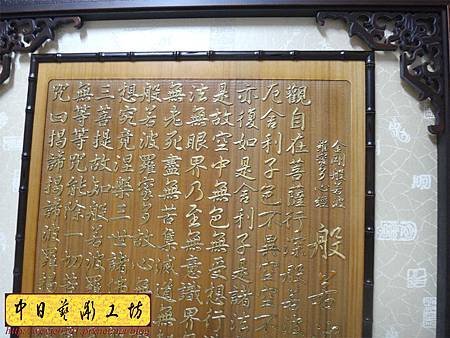 金剛般若波
羅蜜多心經
般若
觀自在菩薩行深般若波
厄舍利子色不異空空不
亦復如是舍利子是諸法
是故空中無色無受想行
法無眼界乃至無意識界
無老死盡無苦集滅道無
般若波羅蜜多故心無
想究竟涅槃三世諸佛
三菩提故知般若波羅
無等等咒能除一切苦
咒曰揭諦揭諦波羅揭
中日藝雕工坊